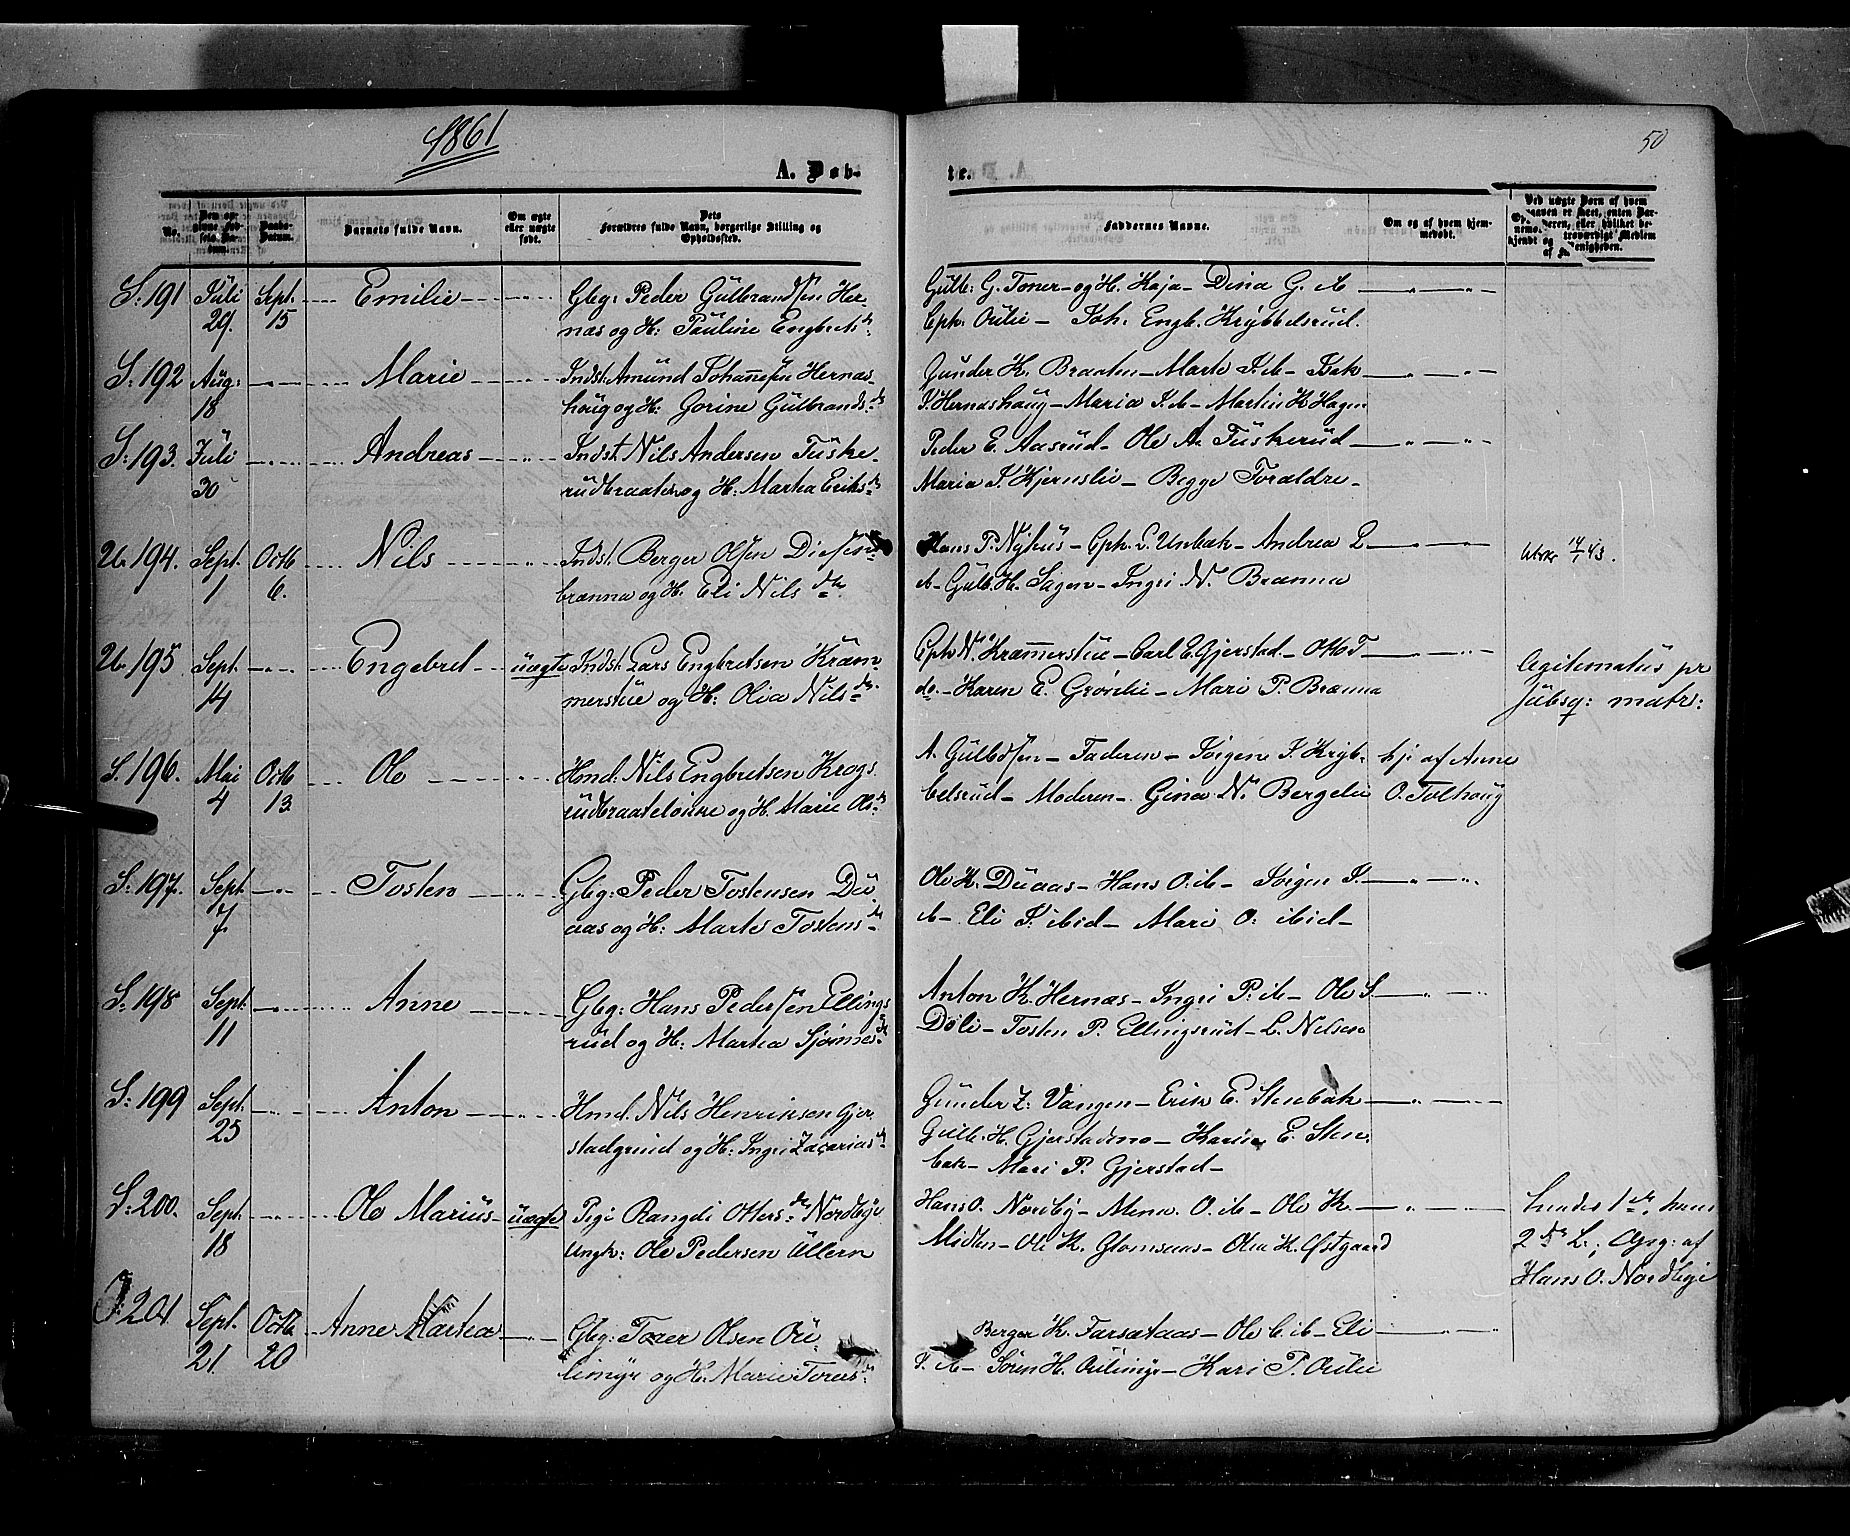 1861
50
A. Døb-
te.
No.
Barnets fulde Navn.
Om ægte eller uægte født.
Forældres fulde Navn, borgerlige Stilling og Opholdsted.
Faddernes Navne.
Om og af hvem hjemmedøbt.
S: 191 Juli 29. Sept. 15 Emilie Gbg: Peder Gulbrandsen Her-
næs og H: Pauline Engbretsd:
Gulb: G. Toner - og H. Kaja - Dina G. ib
Cph. Oulie - Joh. Engb. Krybbelsrud.
S: 192 Aug: 18 Marie Indst: Amund Johannesen Hernæs-
houg og H: Gorine Gulbrandsd:
Gunder K. Braaten - Marte J. ib - Isak
J. Hernæshaug - Maria J. ib - Martin K Hagen
S: 193. Juli 30 Andreas Indst: Nils Andersen Tuske-
rudbraaten og H: Martea Eriksd:
Peder E. Aasrud - Ole A. Tuskerud
Maria J. Kjernslie - Begge Forældre -
Ub 194. Sept. 1 Octb 6. Nils Indst: Berger Olsen Diesen-
brænna og H. Eli Nilsdtr
Hans P. Nyhus - Cph. L. Unbak - Andrea L
ib - Gulb. H. Sagen - Ingri N. Brænna
Ub 195 Sept. 14 Engebret uægte Indst: Lars Engbretsen Kræm-
merstue og H: Olia Nilsdr.
Cph N. Kræmerstue - Carl E. Gjerstad - Otto T
do - Karen E. Grønlie - Mari P. Brænna
legitematus pr
subsq: matr:
S. 196. Mai 4 Octb 13. Ole Hmd. Nils Engbretsen Krogs
rudbraateløkke og H. Marie Olsd:
A. Gulbdsen - Faderen - Jørgen J. Kryb-
belsrud - Moderen - Gina N. Bergelie
hj: af Anne
O. Tolhoug
S: 197. Sept. 7 Tosten Gbg: Peder Tostensen Du-
aas og H: Marte Tostensd:
Ole K. Duaas - Hans O. ib - Jørgen J.
ib - Eli J. ibid - Mari O: ibid -
S: 198 Sept. 11 Anne Gbg: Hans Pedersen Ellings
rud og H: Martea Sjønnesd:
Anton K. Hernæs - Ingri P. ib - Ole S
Døli - Tosten P. Ellingsrud - L. Nilsen
S: 199 Sept. 25 Anton Hmd. Nils Henriksen Gjer
stadgrind og H: Ingri Zacariasd:
Gunder Z: Vangen - Erik E. Stenbak
Gulb: H. Gjerstadmo - Karen E. Sten
bak - Mari P. Gjerstad -
S: 200. Sept. 18 Ole Marius uægte Pige Rangdi Ottersdr. Nordbye
Ungk: Ole Pedersen Ullern
Hans O. Nordby - Mena O. ib - Ole K.
Midten - Ole K. Glomsaas - Olea K. Østgaard
hendes 1ste, hans
2det L:; Opg: af
Hans O. Nordbye
S: 201 Sept. 21. Octb 20 Anne Martea Gbg: Torer Olsen Ou-
limyr og H. Marie Torersd:
Berger K. Farsætaas - Ole C. ib - Eli
J. ib - Søren H. Oulimyr - Kari P. Oulie